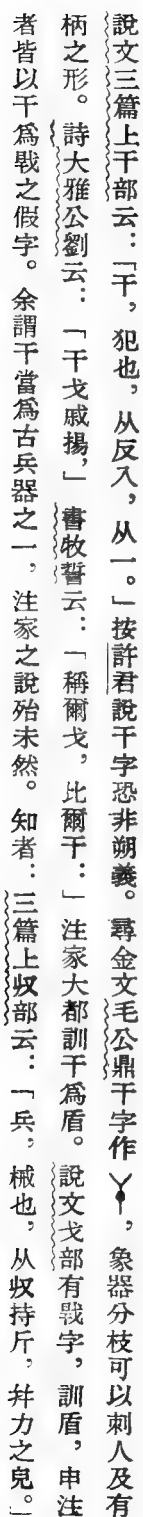 說文三篇上干部云：「干，犯也，从反入，从一。」按許君說干字恐非朔義。尋金文毛公鼎干字作，象器分枝可以刺人及有
柄之形。詩大雅公劉云：「干戈戚揚，」書牧誓云：「稱爾戈，比爾干：」注家大都訓干爲盾。說文戈部有𢧢字，訓盾，申注
者皆以干爲𢧢之假字。余謂干當爲古兵器之一，注家之說殆未然。知者：三篇上収部云：「兵，械也，从収持斤，幷力之皃。」